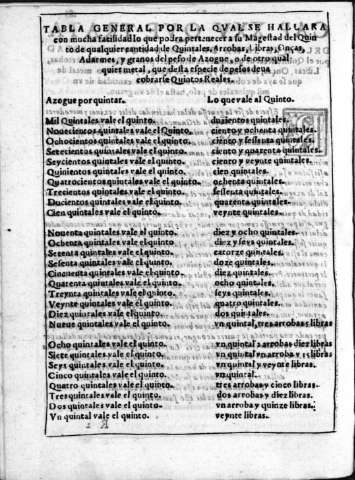 TABLA GENERAL POR LA QVAL SE HALLARA
con mucha facilidad lo que podra pertenecer a su Magestad del Quin
to de qualquier cantidad de Quintales, Arrobas, Libras, Onças,
Adarmes, y granos del peso de Azogue, o de otro qual
quier metal, que desta especie de pesos deua
cobrarse Quintos Reales.
Azogue por quintar. Lo que vale al Quinto.
Mil Quintales vale el Quinto. duzientos quintales.
Nouecientos quintales vale el Quinto. ciento y ochenta quintales.
Ochocientos quintales vale el quinto. ciento y sessenta quintales.
Setecientos quintales vale el quinto. ciento y quarenta quintales.
Seycientos quintales vale el quinto. ciento y veynte quintales.
Quinientos quintales vale el quinto. cien quintales.
Quatrocientos quintales vale el quinto. ochenta quintales.
Trecientos quintales vale el quinto. sessenta quintales.
Ducientos quintales vale el quinto. quarenta quintales.
Cien quintales vale el quinto. veynte quintales.
Nouenta quintales vale el quinto. diez y ocho quintales.
Ochenta quintales vale el quinto. diez y seys quintales.
Setenta quintales vale el quinto. catorze quintales.
Sesenta quintales vale el quinto. doze quintales.
Cincuenta quintales vale el quinto. diez quintales.
Quarenta quintales vale el quinto. ocho quintales.
Treynta quintales vale el quinto. seys quintales.
Veynte quintales vale el quinto. quatro quintales.
Diez quintales vale el quinto. dos quintales.
Nueue quintales vale el quinto. vn quintal, tres arrobas 5 libras
Ocho quintales vale el quinto. vn quintal 2 arrobas diez libras
Siete quintales vale el quinto. vn quintal vn arroba y 15 libras
Seys quintales vale el quinto. vn quintal y veynte libras.
Cinco quintales vale el quinto. vn quintal.
Quatro quintales vale el quinto. tres arrobas y cinco libras.
Tres quintales vale el quinto. dos arrobas y diez libras.
Dos quintales vale el quinto. vn arroba y quinze libras.
Vn quintal vale el quinto. veynte libras.